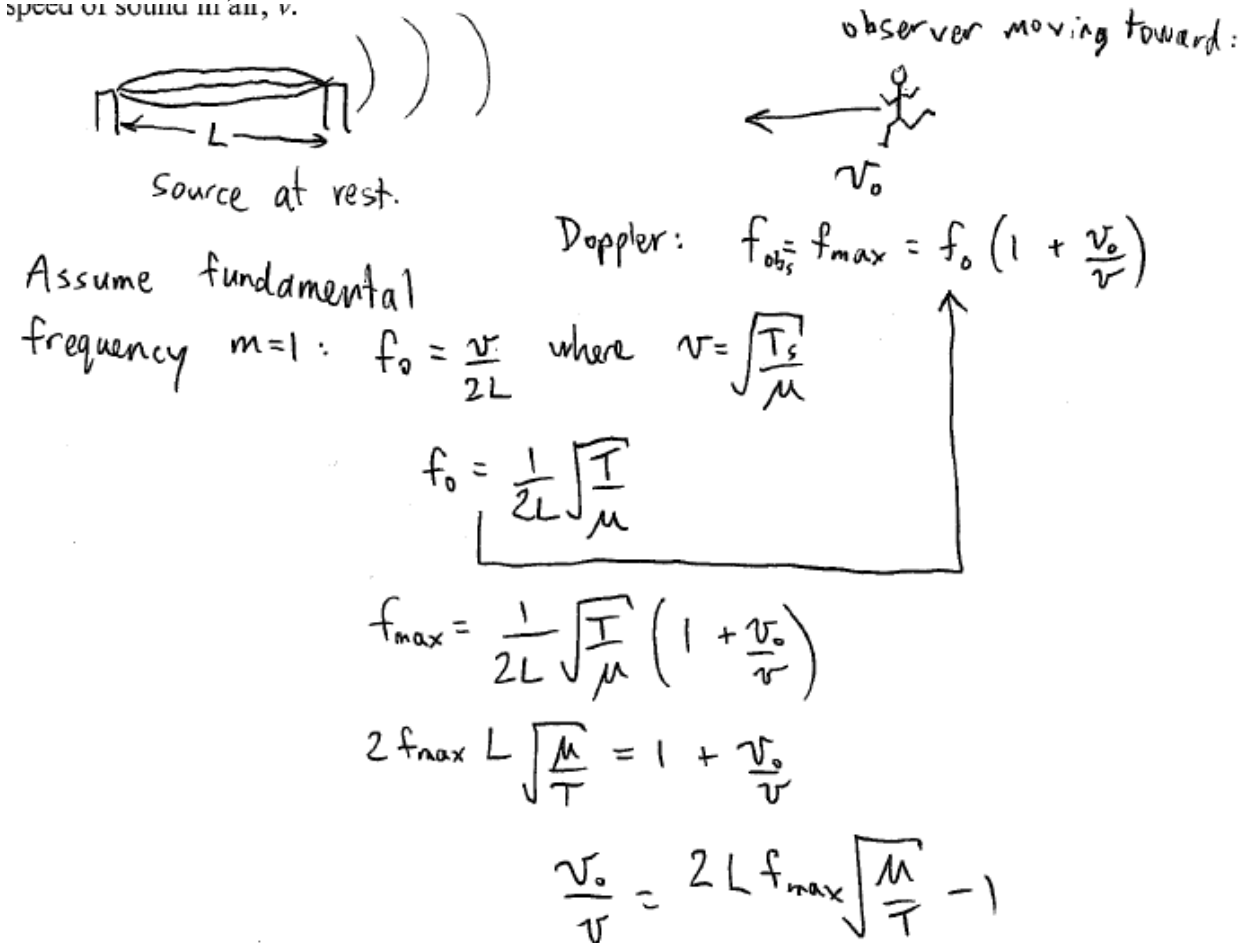 speed of sound in air, v.
observer moving toward:
L
source at rest.
v₀
Doppler: f_obs = f_max = f₀ (1 + v₀/v)
Assume fundamental
frequency m=1: f₀ = v/2L where v = √(T_s/μ)
f₀ = 1/2L √(T/μ)
f_max = 1/2L √(T/μ) (1 + v₀/v)
2 f_max L √(μ/T) = 1 + v₀/v
v₀/v = 2 L f_max √(μ/T) - 1